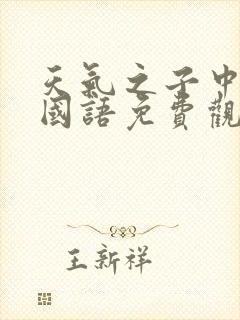 天氣之子中
國語免費觀
王新祥